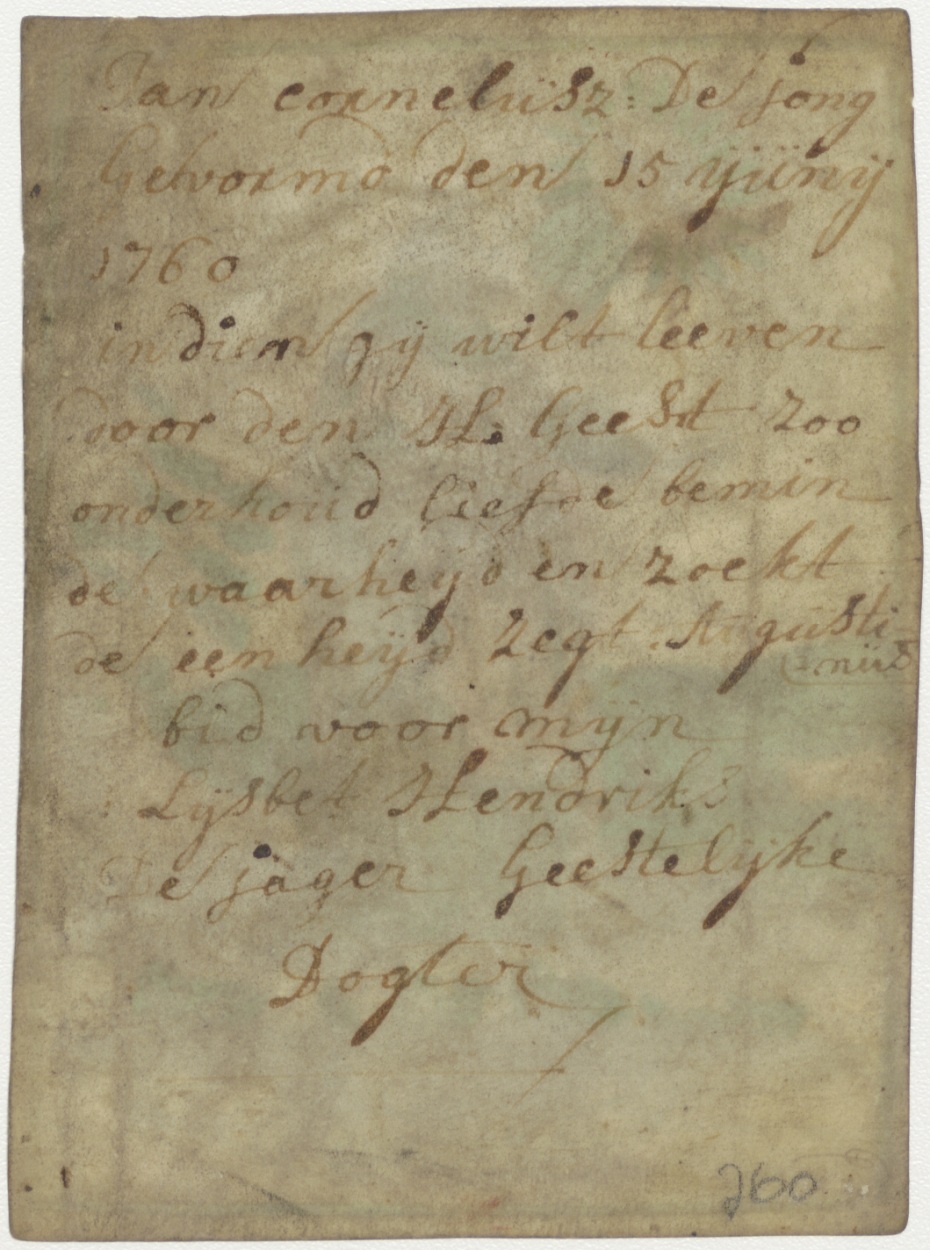 Jan cornelüsz: De jong
Gevormd den 15 yünÿ
1760
indien gÿ wilt leeven
door den H: Geest zoo
onderhoüd liefde bemin
de waarheÿd en zoekt
de eenheÿd zegt Augüsti=
nüs
bid voor mÿn
Lÿsbet Hendriks
De jager Geestelÿke
Dogter
760